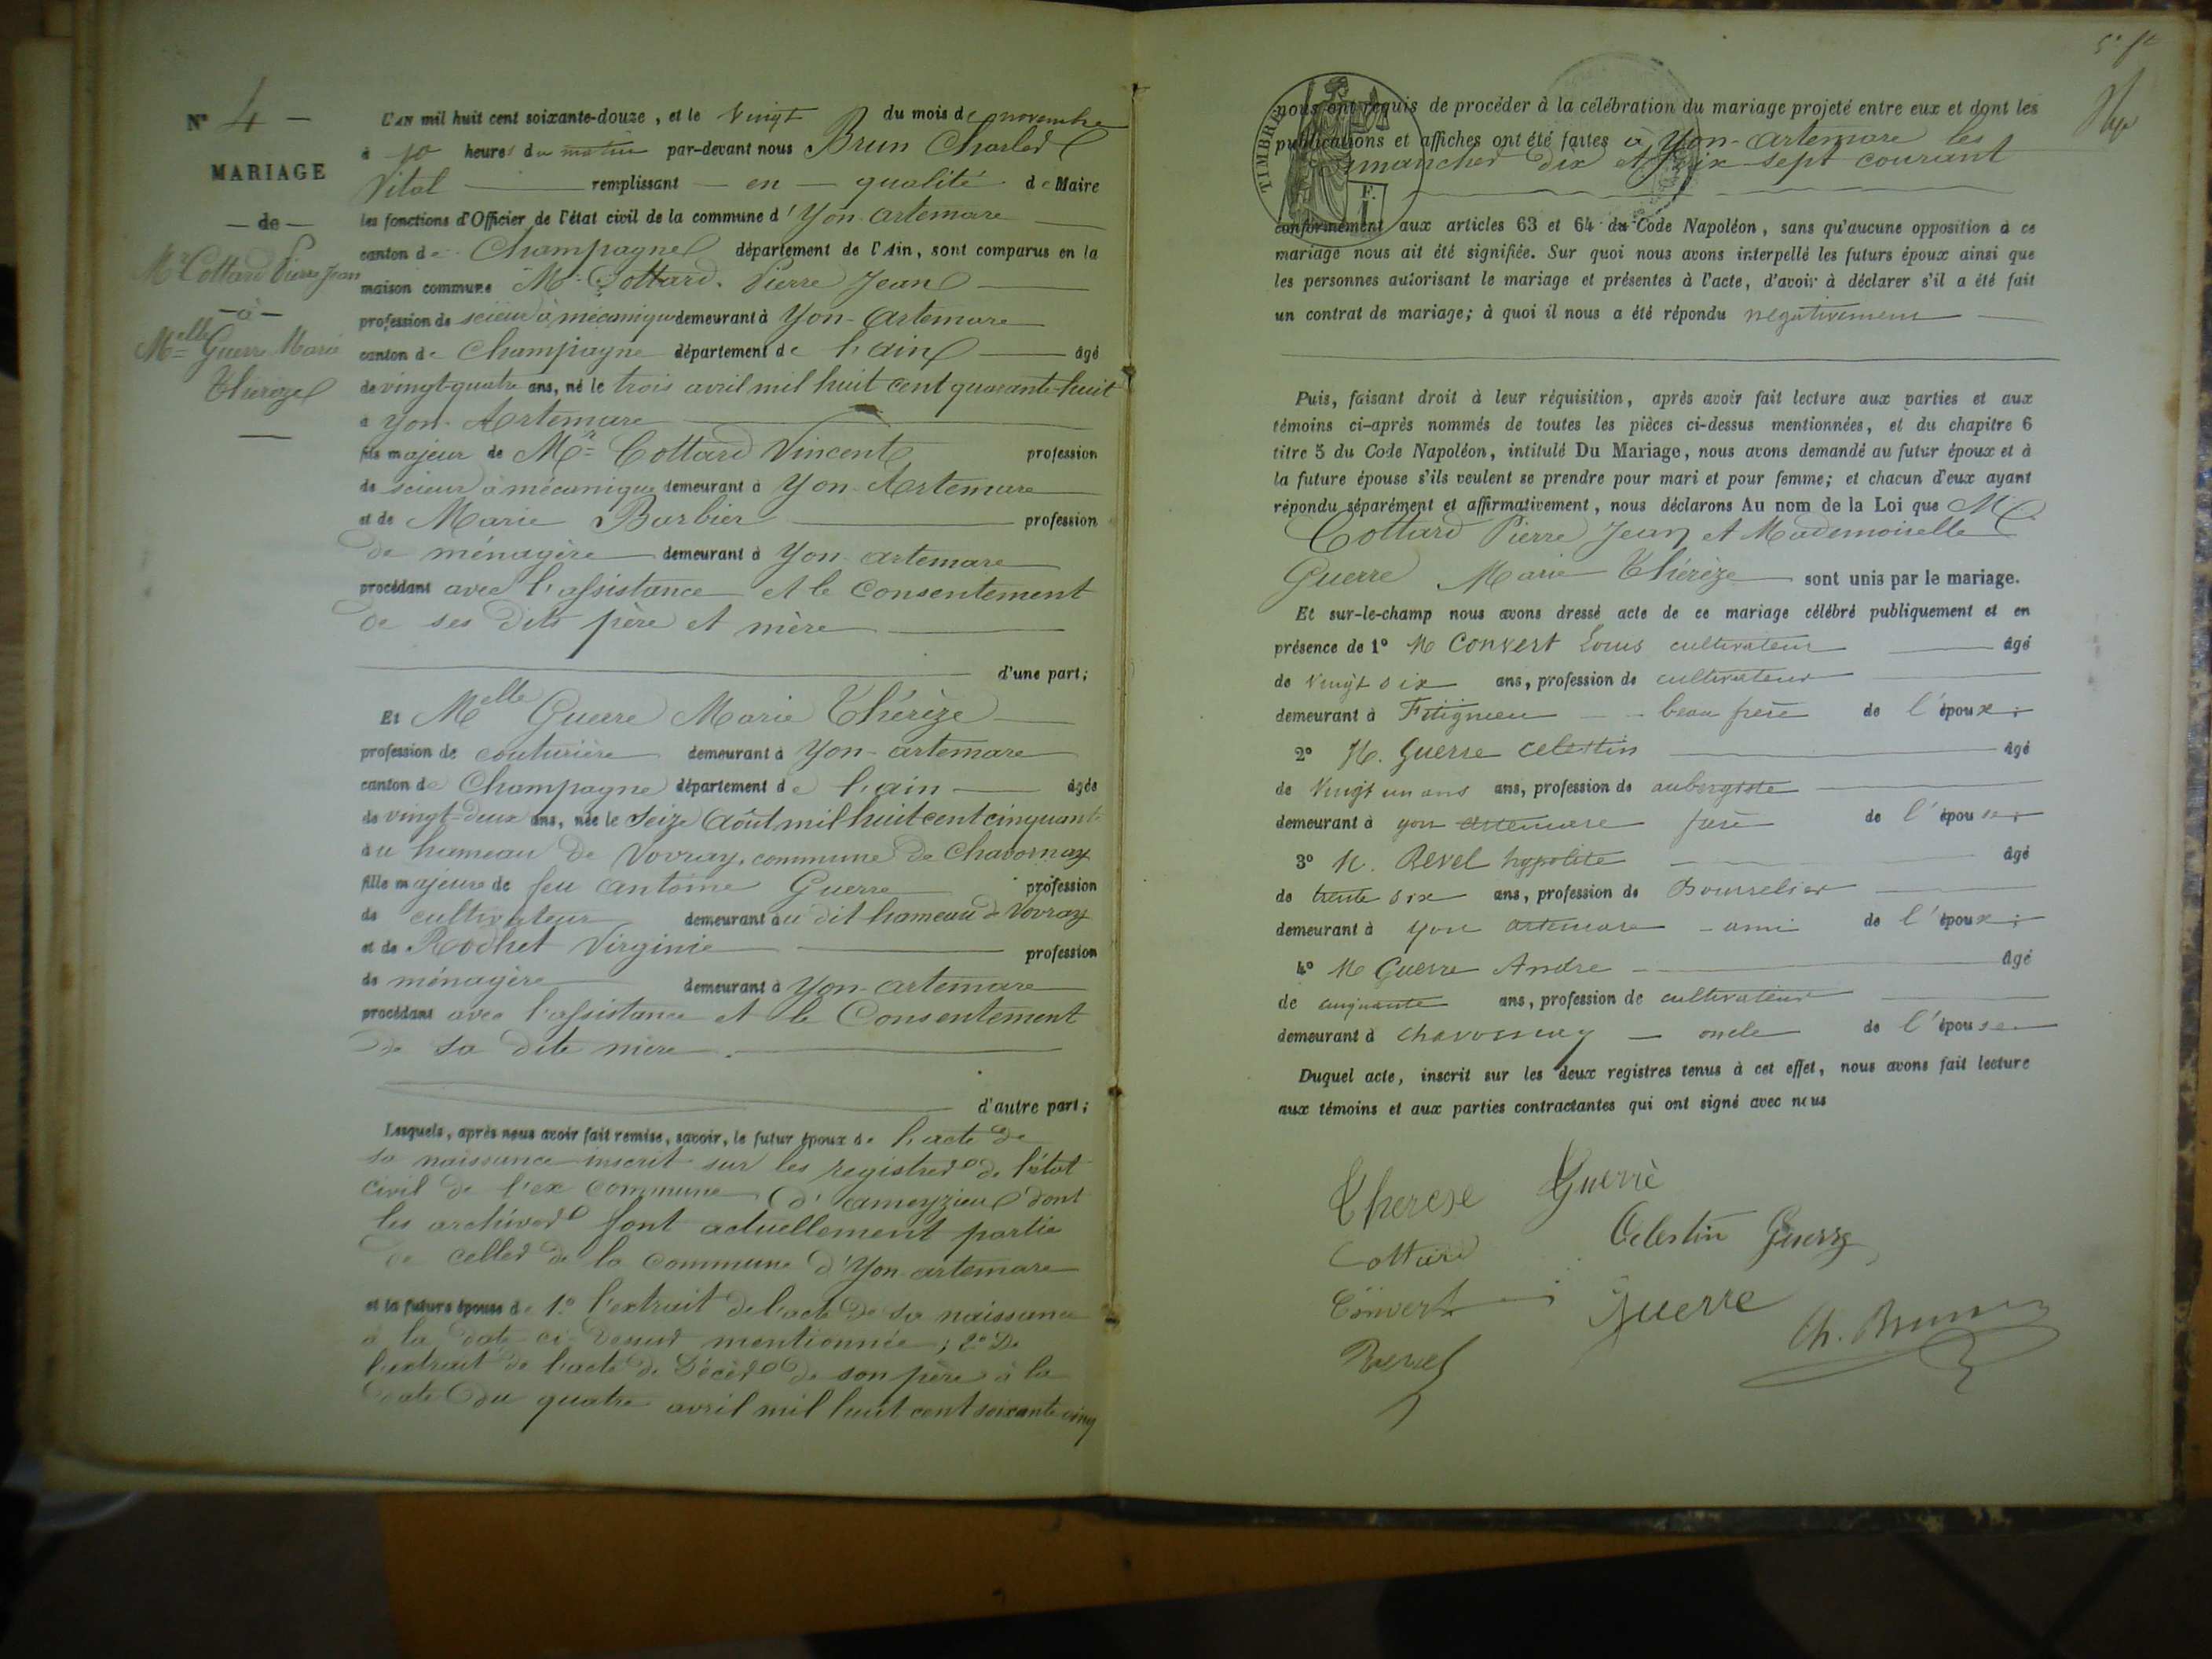 N° 4 -
MARIAGE
- de -
Mr Cottard Pierre Jean
- à -
Melle Guerre Marie
Thérèze
L'AN mil huit cent soixante-douze, et le Vingt du mois de novembre
à 10 heures du matin par-devant nous Brun Charles
Vital remplissant en qualité de Maire
les fonctions d'Officier de l'état civil de la commune d'Yon-artemare
canton de Champagne département de l'Ain, sont comparus en la
maison commune Mr Cottard Pierre Jean
profession de scieur à mécanique demeurant à Yon-Artemare
canton de Champagne département de l'ain âgé
de vingt-quatre ans, né le trois avril mil huit cent quarante-huit
a Yon-Artemare
fils majeur de Mr Cottard Vincent profession
de scieur à mécanique demeurant à Yon-Artemare
et de Marie Barbier profession
de ménagère demeurant à Yon-artemare
procédant avec l'assistance et le Consentement
de ses dits père et mère
d'une part;
Et Melle Guerre Marie Thérèze
profession de couturière demeurant à Yon-artemare
canton de Champagne département de l'ain âgée
de vingt-deux ans, née le Seize Août mil huit cent cinquante
au hameau de Vovray, commune de Chavornay
fille majeure de feu antoine Guerre profession
de cultivateur demeurant au dit hameau de Vovray
et de Rochet Virginie profession
de ménagère demeurant à Yon-artemare
procédant avec l'assistance et le Consentement
de sa dite mère.
d'autre part;
Lesquels, après nous avoir fait remise, savoir, le futur époux de l'acte de
sa naissance inscrit sur les registres de l'état
civil de l'ex commune d'ameyzieu dont
les archives font actuellement partie
de celles de la commune d'Yon-artemare
et la future épouse de 1.° l'extrait de l'acte de sa naissance
à la date ci-dessus mentionnée; 2.° De
l'extrait de l'acte de Décès de son père à la
date du quatre avril mil huit cent soixante cinq
TIMBRE
F.
1
nous ont requis de procéder à la célébration du mariage projeté entre eux et dont les
publications et affiches ont été faites à Yon-artemare les
dimanches dix et dix-sept courant
conformément aux articles 63 et 64 du Code Napoléon, sans qu'aucune opposition à ce
mariage nous ait été signifiée. Sur quoi nous avons interpellé les futurs époux ainsi que
les personnes autorisant le mariage et présentes à l'acte, d'avoir à déclarer s'il a été fait
un contrat de mariage; à quoi il nous a été répondu négativement
Puis, faisant droit à leur réquisition, après avoir fait lecture aux parties et aux
témoins ci-après nommés de toutes les pièces ci-dessus mentionnées, et du chapitre 6
titre 5 du Code Napoléon, intitulé Du Mariage, nous avons demandé au futur époux et à
la future épouse s'ils veulent se prendre pour mari et pour femme; et chacun d'eux ayant
répondu séparément et affirmativement, nous déclarons Au nom de la Loi que M.
Cottard Pierre Jean et Mademoiselle
Guerre Marie Thérèze sont unis par le mariage.
Et sur-le-champ nous avons dressé acte de ce mariage célébré publiquement et en
présence de 1° M Convert Louis cultivateur âgé
de Vingt six ans, profession de cultivateur
demeurant à Fitignieu beau frère de l'époux;
2° M. Guerre Celestin âgé
de Vingt un ans ans, profession de aubergiste
demeurant à yon artemare frère de l'épouse;
3° M. Revel hypolite âgé
de trente six ans, profession de Bourrelier
demeurant à yon artemare - ami de l'époux;
4° M Guerre Andre âgé
de cinquante ans, profession de cultivateur
demeurant à chavornay - oncle de l'épouse
Duquel acte, inscrit sur les deux registres tenus à cet effet, nous avons fait lecture
aux témoins et aux parties contractantes qui ont signé avec nous
Therese Guerre
Celestin Guerre
Cottard
Convert
Guerre
Ch. Brun
Revel